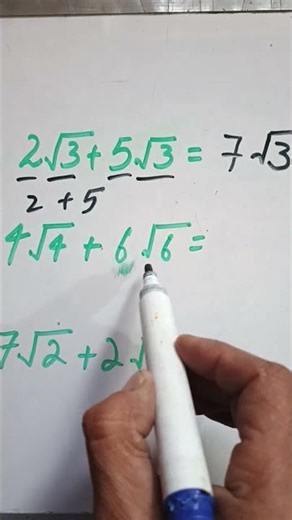 2√3+5√3=7√3
2+5
4√4+6√6=
7√2+2√